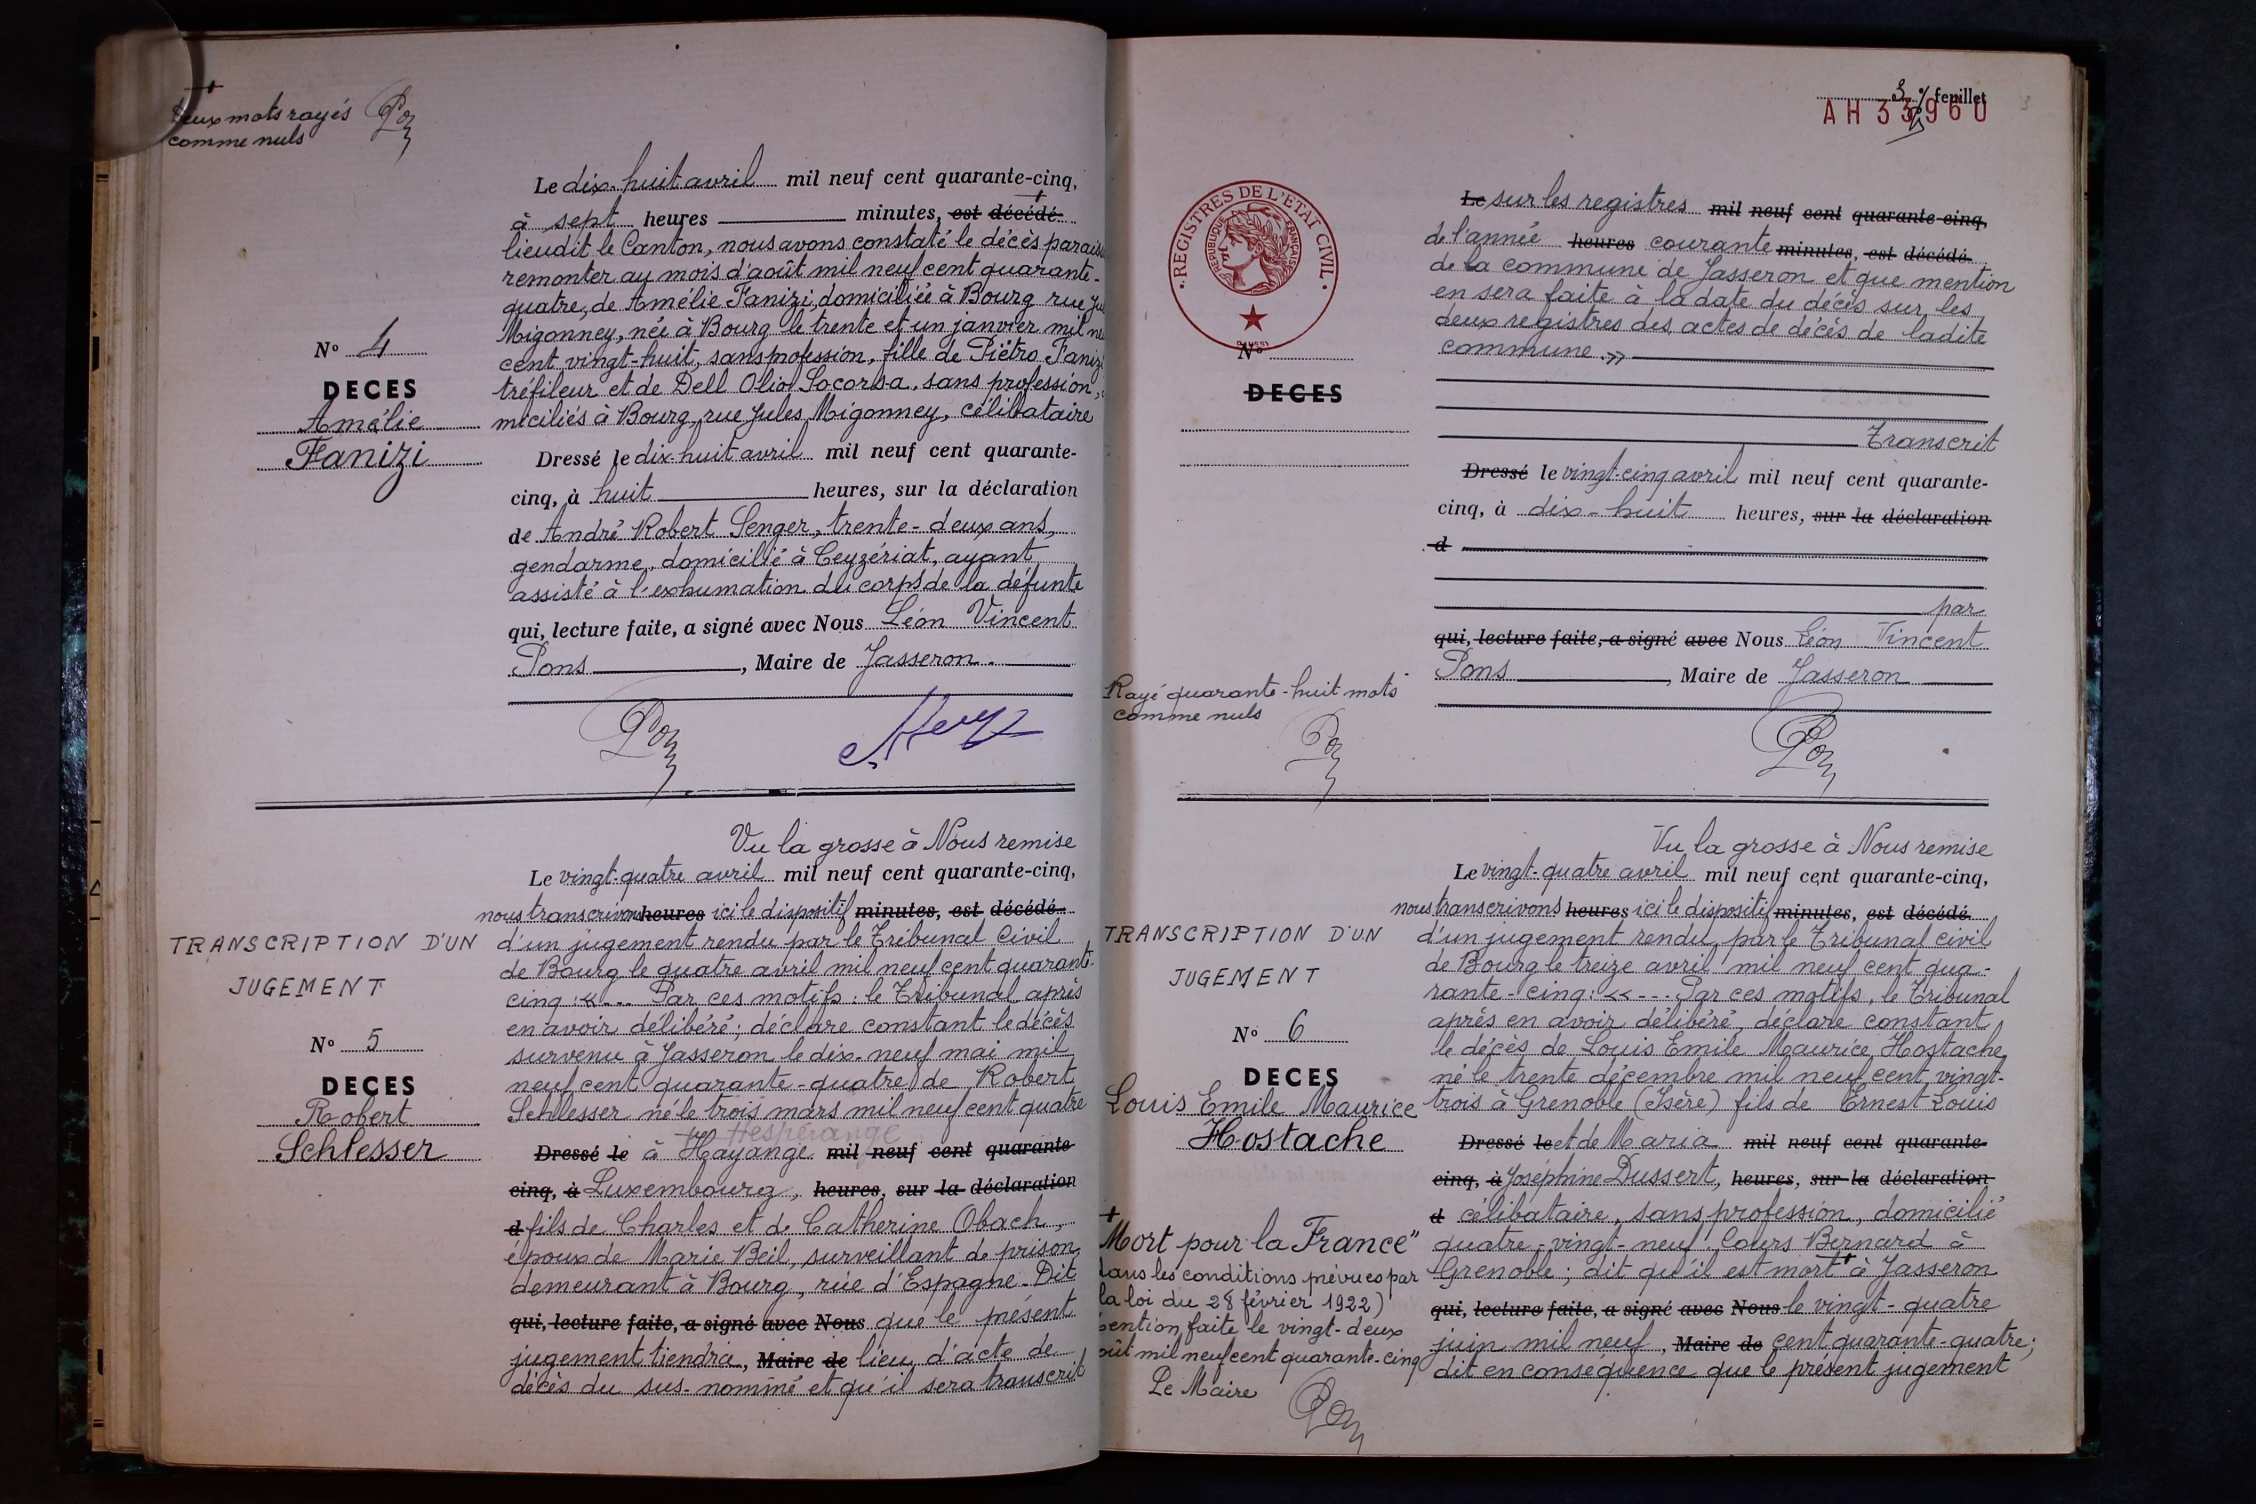 deux mots rayés
comme nuls
Le dix-huit avril mil neuf cent quarante-cinq,
à sept heures minutes, est décédé
lieudit le Canton, nous avons constaté le décès parais
remonter au mois d'août mil neuf cent quarante-
quatre, de Amélie Fanizi, domiciliée à Bourg rue Ju
Migonney, née à Bourg le trente et un janvier mil ne
cent vingt-huit, sans profession, fille de Piëtro Fanizi
tréfileur et de Dell Olio Socorsa, sans profession,
miciliés à Bourg, rue Jules Migonney, célibataire
N° 4
DECES
Amélie
Fanizi
Dressé le dix-huit avril mil neuf cent quarante-
cinq, à huit heures, sur la déclaration
de André Robert Senger, trente-deux ans,
gendarme, domicilié à Ceyzériat, ayant
assisté à l'exhumation du corps de la défunte
qui, lecture faite, a signé avec Nous Léon Vincent
Pons, Maire de Jasseron.
Vu la grosse à Nous remise
Le vingt-quatre avril mil neuf cent quarante-cinq,
nous transcrivons heures ici le dispositif minutes, est décédé
d'un jugement rendu par le Tribunal Civil
de Bourg le quatre avril mil neuf cent quarante-
cinq : «... Par ces motifs : le Tribunal après
en avoir délibéré ; déclare constant le décès
survenu à Jasseron le dix-neuf mai mil
neuf cent quarante-quatre de Robert
Schlesser né le trois mars mil neuf cent quatre
TRANSCRIPTION D'UN
JUGEMENT
N° 5
DECES
Robert
Schlesser
Hespérange
Dressé le à Hayange mil neuf cent quarante-
cinq, à Luxembourg, heures, sur la déclaration
d fils de Charles et de Catherine Obach,
époux de Marie Beil, surveillant de prison
demeurant à Bourg, rue d'Espagne. Dit
qui, lecture faite, a signé avec Nous que le présent
jugement tiendra, Maire de lieu d'acte de
décès du sus-nommé et qu'il sera transcrit
3 feuillet
AH 33960
3
REGISTRES DE L'ÉTAT CIVIL
RÉPUBLIQUE FRANÇAISE
Le sur les registres mil neuf cent quarante-cinq,
de l'année heures courante minutes, est décédé
de la commune de Jasseron et que mention
en sera faite à la date du décès sur les
deux registres des actes de décès de ladite
commune.»
N°
DECES
Transcrit
Dressé le vingt-cinq avril mil neuf cent quarante-
cinq, à dix-huit heures, sur la déclaration
d
par
qui, lecture faite, a signé avec Nous Léon Vincent
Pons, Maire de Jasseron
Rayé quarante-huit mots
comme nuls
Vu la grosse à Nous remise
Le vingt-quatre avril mil neuf cent quarante-cinq,
nous transcrivons heures ici le dispositif minutes, est décédé
d'un jugement rendu par le Tribunal civil
de Bourg le treize avril mil neuf cent qua-
rante-cinq : «--- Par ces motifs, le Tribunal
après en avoir délibéré, déclare constant
le décès de Louis Emile Maurice Hostache
né le trente décembre mil neuf cent vingt-
trois à Grenoble (Isère) fils de Ernest Louis
TRANSCRIPTION D'UN
JUGEMENT
N° 6
DECES
Louis Emile Maurice
Hostache
Dressé le et de Maria mil neuf cent quarante-
cinq, à Joséphine Dussert, heures, sur la déclaration
d célibataire, sans profession, domicilié
quatre-vingt-neuf Cours Bernard à
Grenoble ; dit qu'il est mort + à Jasseron
qui, lecture faite, a signé avec Nous le vingt-quatre
juin mil neuf, Maire de cent quarante-quatre ;
dit en conséquence que le présent jugement
+
Mort pour la France"
dans les conditions prévues par
la loi du 28 février 1922)
mention faite le vingt-deux
oût mil neuf cent quarante-cinq
Le Maire